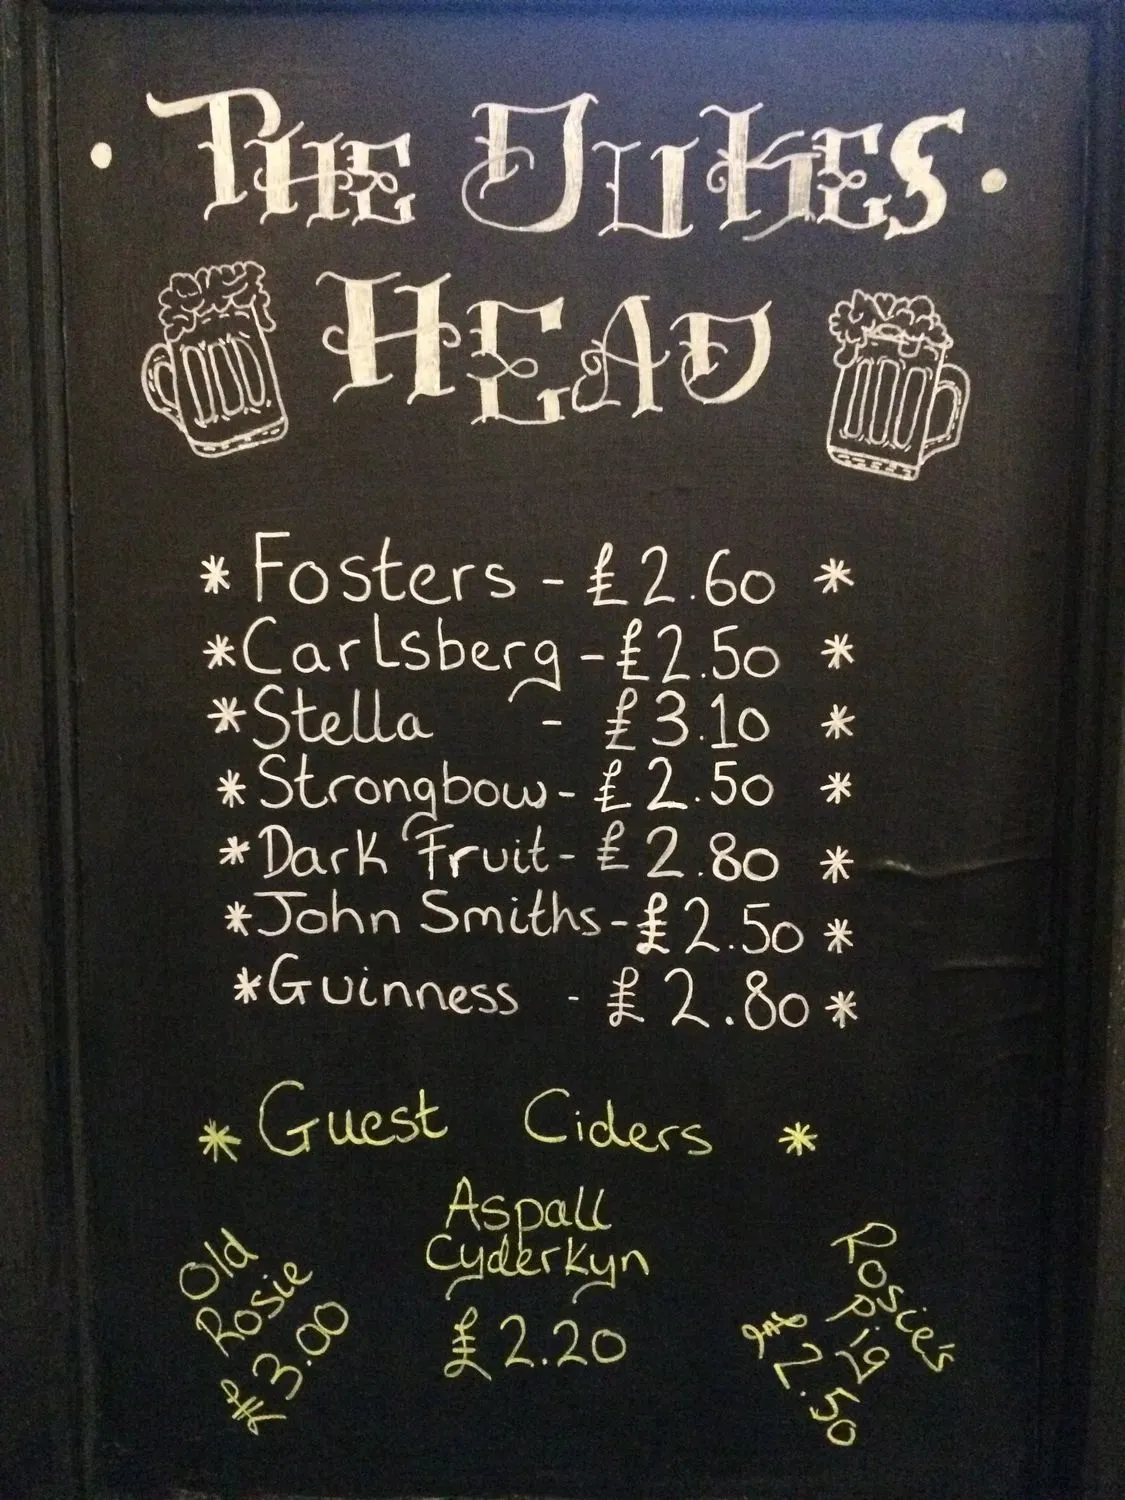 • THE DUKES •
HEAD
* Fosters - £2.60 *
* Carlsberg - £2.50 *
* Stella - £3.10 *
* Strongbow - £2.50 *
* Dark Fruit - £2.80 *
* John Smiths - £2.50 *
* Guinness - £2.80 *
* Guest Ciders *
Old
Rosie
£3.00
Aspall
Cyderkyn
£2.20
Rosie's
Pig
£2.50